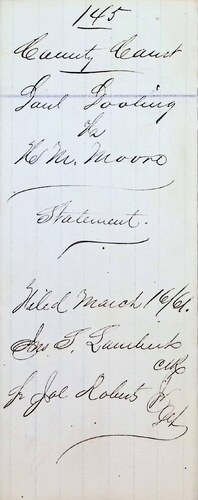 145
County Court
Paul Dooling
Vs
H M. Moore
Statement.
Filed March 16/61.
Jas. T. Lambert
Clk
pr Joe Roberts Jr
Dpt